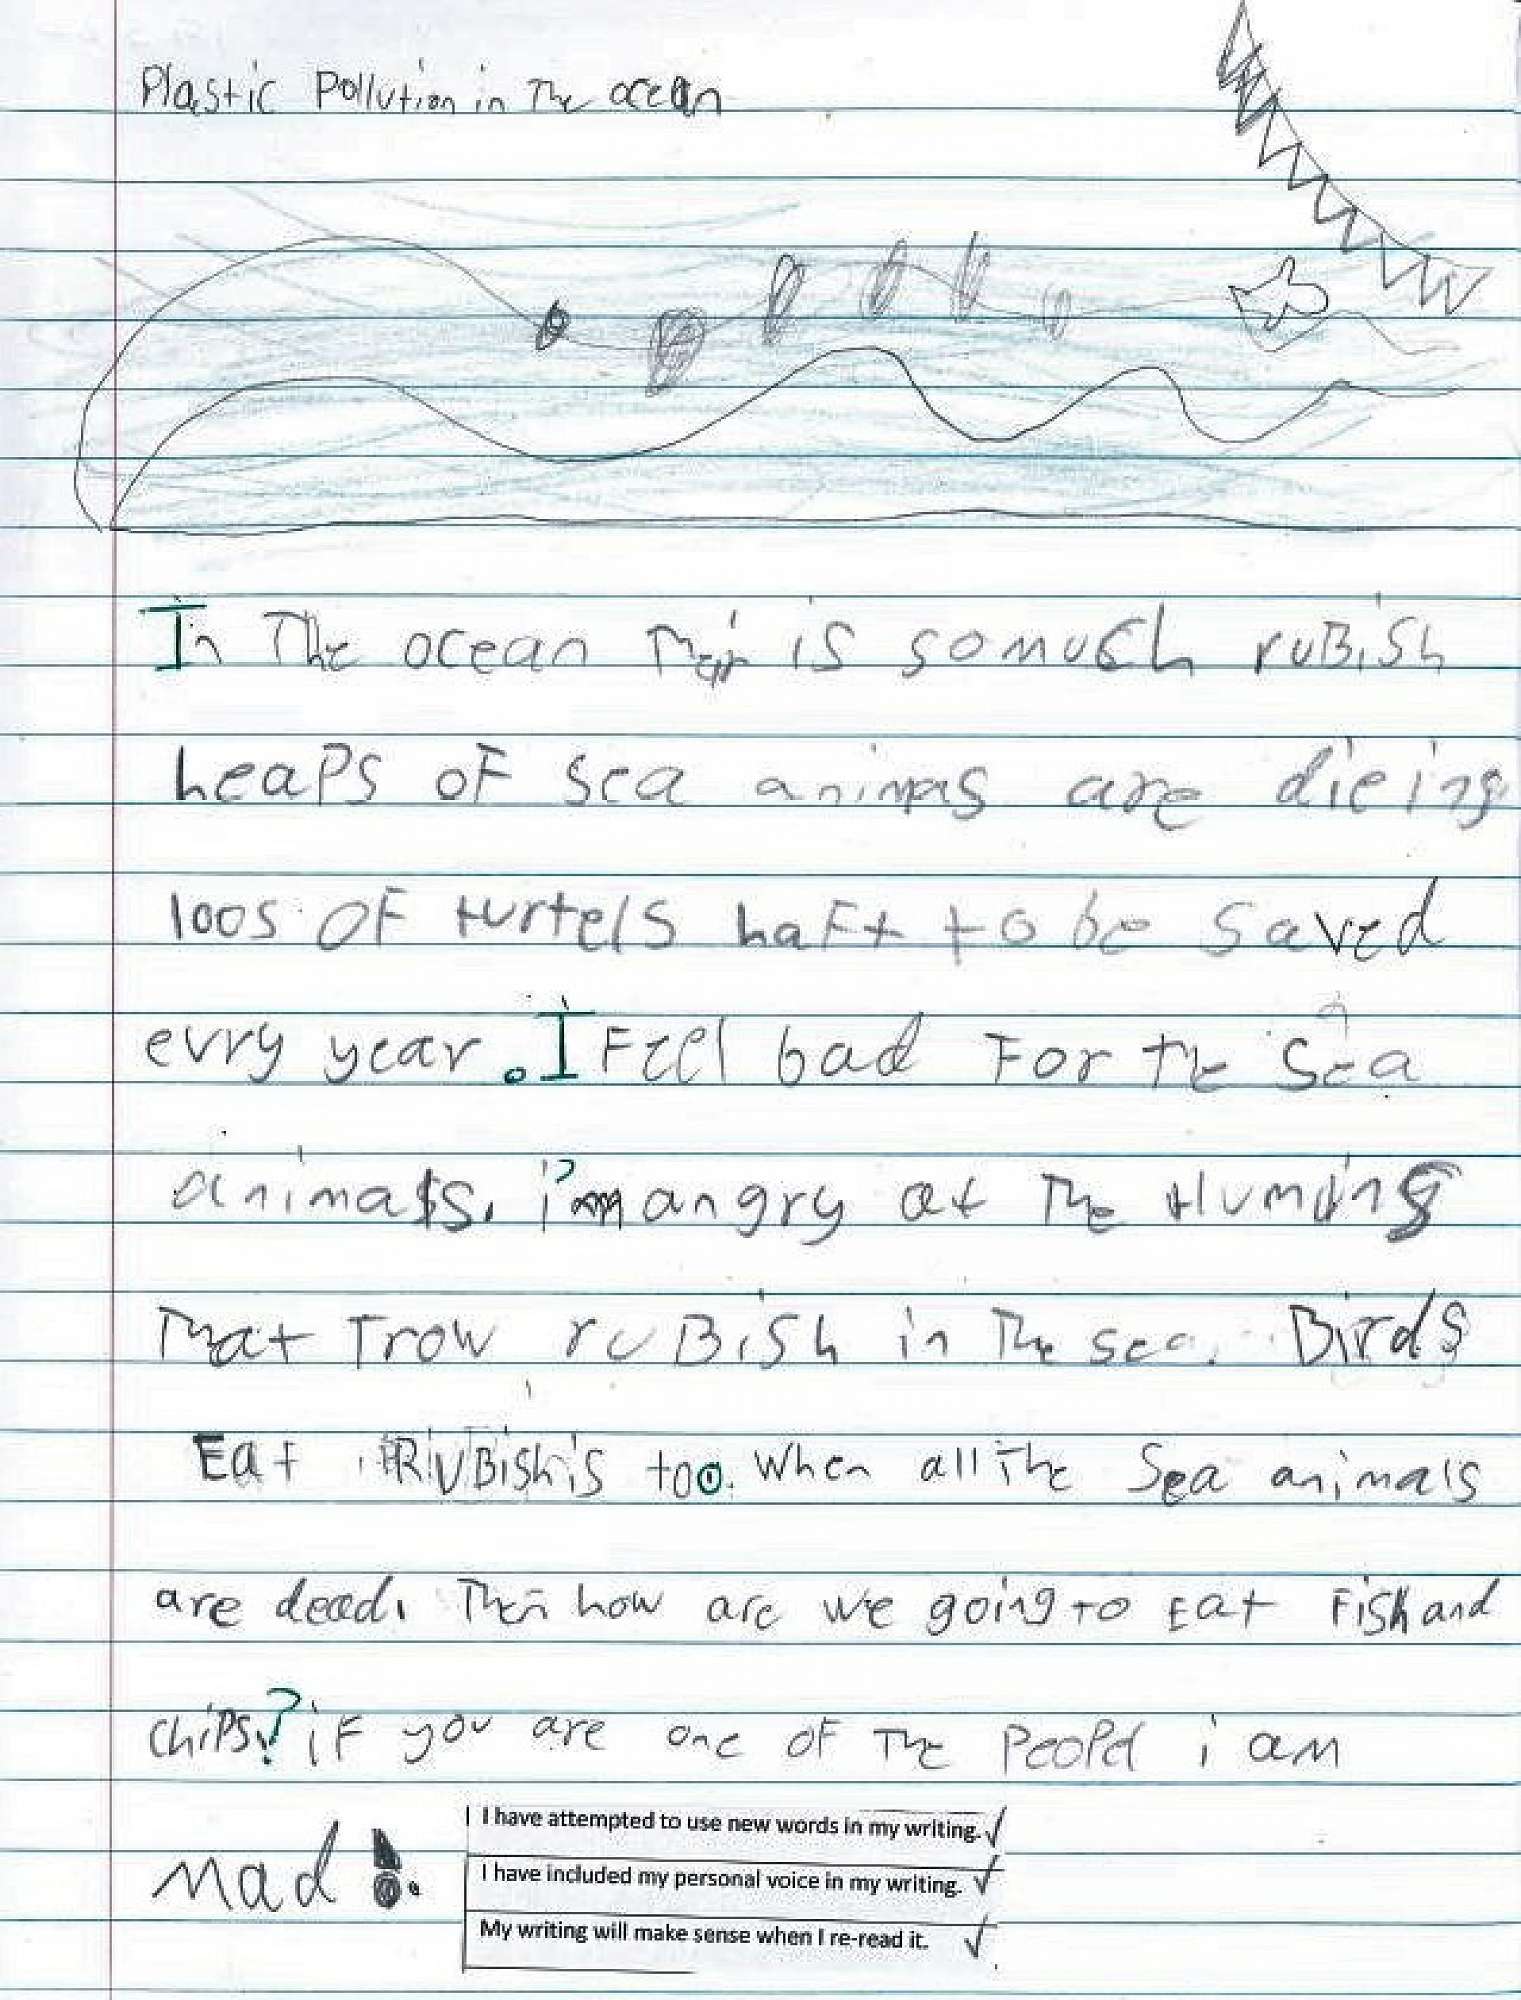 Plastic Pollution in The ocean
In The ocean Their is somuch ruBish
heaps oF sea animas are dieing
100s OF turtels haft to be saved
evry year. I Feel bad For the Sea
animals. i'm angry at The Humins
That Trow ruBish in The sea. Birds
Eat RuBish is too. When all The Sea animals
are dead. Then how are we going to Eat Fish and
chips.? iF you are one oF The PeoPel i am
mad!.
I have attempted to use new words in my writing. ✓
I have included my personal voice in my writing. ✓
My writing will make sense when I re-read it. ✓